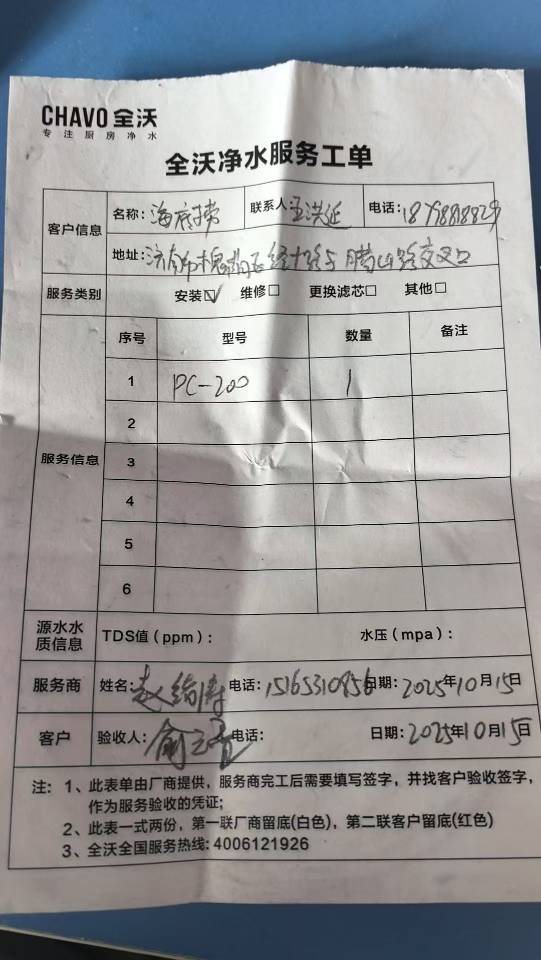 CHAVO 全沃
专注厨房净水
全沃净水服务工单
客户信息
名称: 海底捞 联系人: 王洪延 电话:
地址: 济南市槐荫区经十路与腊山路交叉口
服务类别 安装☑ 维修□ 更换滤芯□ 其他□
服务信息
序号 型号 数量 备注
1 PC-200 1
2
3
4
5
6
源水水质信息 TDS值（ppm）: 水压（mpa）:
服务商 姓名: 赵 电话: 15165310856 日期: 2025年10月15日
客户 验收人: 电话: 日期: 2025年10月15日
注: 1、此表单由厂商提供，服务商完工后需要填写签字，并找客户验收签字，
作为服务验收的凭证;
2、此表一式两份，第一联厂商留底(白色)，第二联客户留底(红色)
3、全沃全国服务热线: 4006121926